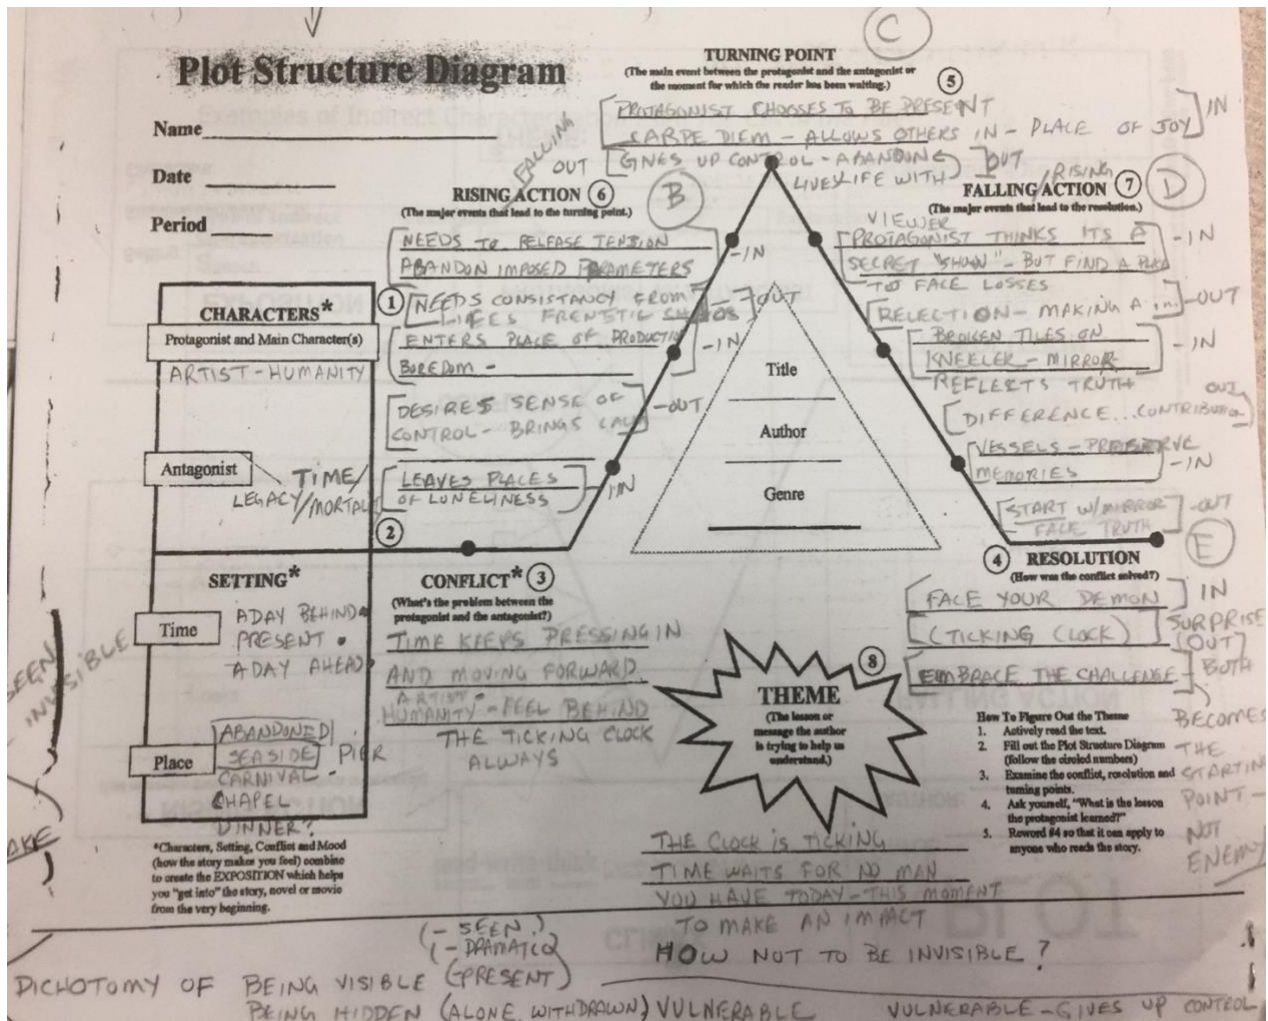 C
Plot Structure Diagram
Name
Date
Period
TURNING POINT
(The main event between the protagonist and the antagonist or
the moment for which the reader has been waiting.)
5
PROTAGONIST CHOOSES TO BE PRESENT
CARPE DIEM - ALLOWS OTHERS IN - PLACE OF JOY
IN
GIVES UP CONTROL - ABANDONS
LIVES LIFE WITH
OUT
FALLING
OUT
RISING ACTION 6
(The major events that lead to the turning point.)
B
NEEDS TO RELEASE TENSION
ABANDON IMPOSED PARAMETERS
- IN
NEEDS CONSISTANCY FROM
LIFES FRENETIC CHAOS
- OUT
ENTERS PLACE OF PRODUCTIO
BOREDOM -
- IN
DESIRES SENSE OF
CONTROL - BRINGS
- OUT
LEAVES PLACES
OF LONELINESS
- IN
/RISING
FALLING ACTION 7
(The major events that lead to the resolution.)
D
VIEWER
PROTAGONIST THINKS ITS A
SECRET "SHOW" - BUT FIND A PLACE
TO FACE LOSSES
- IN
RELECTION - MAKING A
- OUT
BROKEN TILES ON
KNEELER - MIRROR
REFLECTS TRUTH
- IN
OUT
DIFFERENCE... CONTRIBUTION
VESSELS - PRESERVE
MEMORIES
- IN
START W/MIRROR
FACE TRUTH
- OUT
1
CHARACTERS*
Protagonist and Main Character(s)
ARTIST - HUMANITY
Antagonist
TIME/
LEGACY/MORTALI
2
Title
Author
Genre
SETTING*
Time
A DAY BEHIND
PRESENT
A DAY AHEAD
Place
ABANDONED
SEASIDE PIER
CARNIVAL
CHAPEL
DINNER?
*Characters, Setting, Conflict and Mood
(how the story makes you feel) combine
to create the EXPOSITION which helps
you "get into" the story, novel or movie
from the very beginning.
CONFLICT* 3
(What's the problem between the
protagonist and the antagonist?)
TIME KEEPS PRESSING IN
AND MOVING FORWARD
ARTIST -
HUMANITY - FEEL BEHIND
THE TICKING CLOCK
ALWAYS
E
4 RESOLUTION
(How was the conflict solved?)
FACE YOUR DEMON
IN
(TICKING CLOCK)
SURPRISE
(OUT)
EMBRACE THE CHALLENGE
- BOTH
BECOMES
THE
STARTING
POINT -
NOT
ENEMY
8
THEME
(The lesson or
message the author
is trying to help us
understand.)
How To Figure Out the Theme
1. Actively read the text.
2. Fill out the Plot Structure Diagram
(follow the circled numbers)
3. Examine the conflict, resolution and
turning points.
4. Ask yourself, "What is the lesson
the protagonist learned?"
5. Reword #4 so that it can apply to
anyone who reads the story.
THE CLOCK IS TICKING
TIME WAITS FOR NO MAN
YOU HAVE TODAY - THIS MOMENT
TO MAKE AN IMPACT
HOW NOT TO BE INVISIBLE?
SEEN
INVISIBLE
(- SEEN)
(- DRAMATIC)
DICHOTOMY OF BEING VISIBLE (PRESENT)
BEING HIDDEN (ALONE, WITHDRAWN) VULNERABLE
VULNERABLE - GIVES UP CONTROL